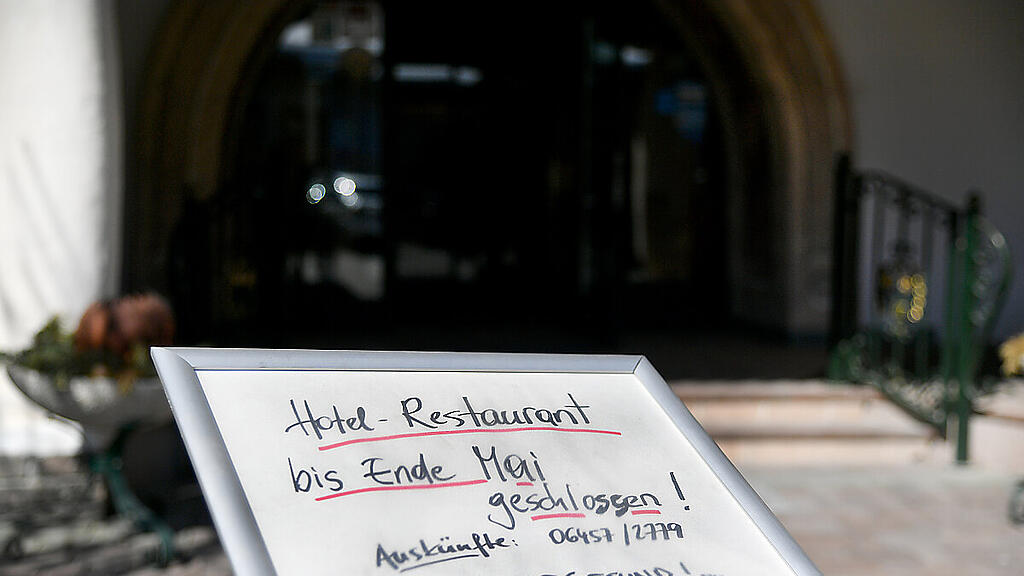 Hotel-Restaurant
bis Ende Mai
geschlossen!
Auskünfte: 06457/2779